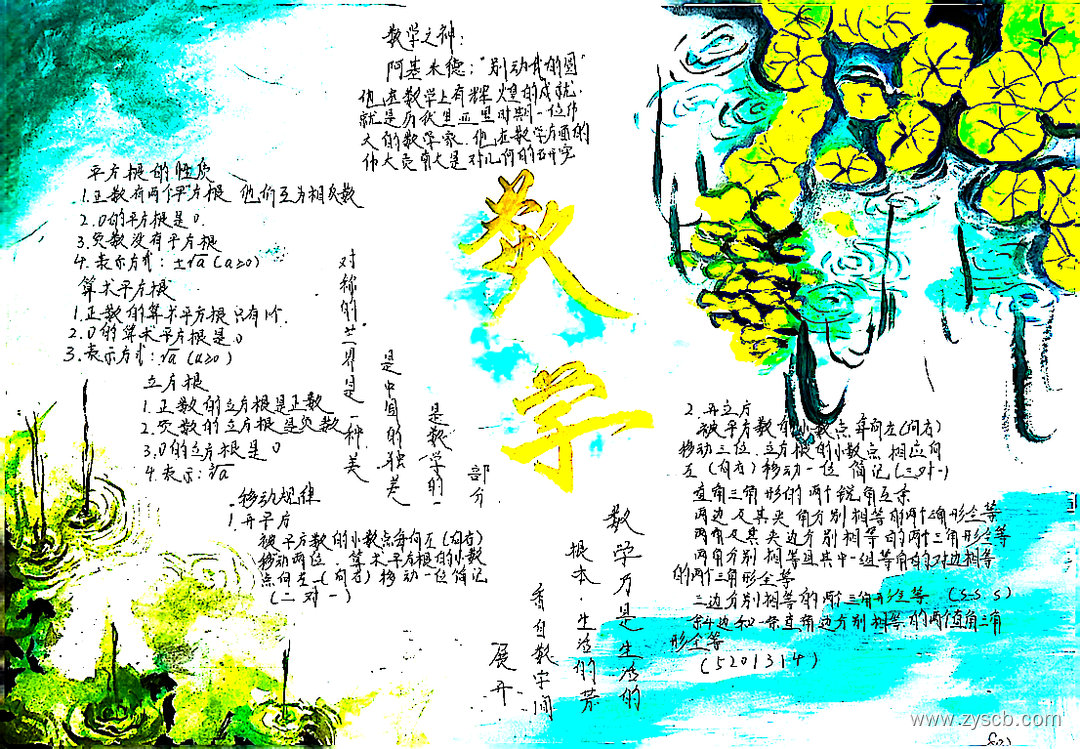 数学之神：
阿基米德："别动我的圆"
他在数学上有辉煌的成就
就是历我里亚里时期一位伟
大的数学家，他在数学方面的
伟大贡献大是对几何的研究
平方根的性质
1.正数有两个平方根 他们互为相反数
2.0的平方根是0
3.负数没有平方根
4.表示方式：±√a (a≥0)
算术平方根
1.正数的算术平方根只有1个.
2.0的算术平方根是0
3.表示方式：√a (a≥0)
立方根
1.正数的立方根是正数
2.负数的立方根是负数
3.0的立方根是0
4.表示：∛a
移动规律
1.开平方
被平方数的小数点每向左(向右)
移动两位，算术平方根的小数
点向左(向右)移动一位 简记
(二对一)
对称的世界是一种美
是中国的独美
是数学的一
部分
数学
2.开立方
被平方数的小数点每向左(向右)
移动三位，立方根的小数点相应向
左(向右)移动一位 简记(三对一)
直角三角形的两个锐角互余
两边及其夹角分别相等的两个三角形全等
两角及其夹边分别相等的两个三角形全等
两角分别相等且其中一组等角的对边相等
的两个三角形全等
三边分别相等的两个三角形全等 (S.S.S)
斜边和一条直角边分别相等的两个直角三角
形全等
(5201314)
数学乃是生活的
根本，生活的芳
香自数字间
展开
www.zyscb.com